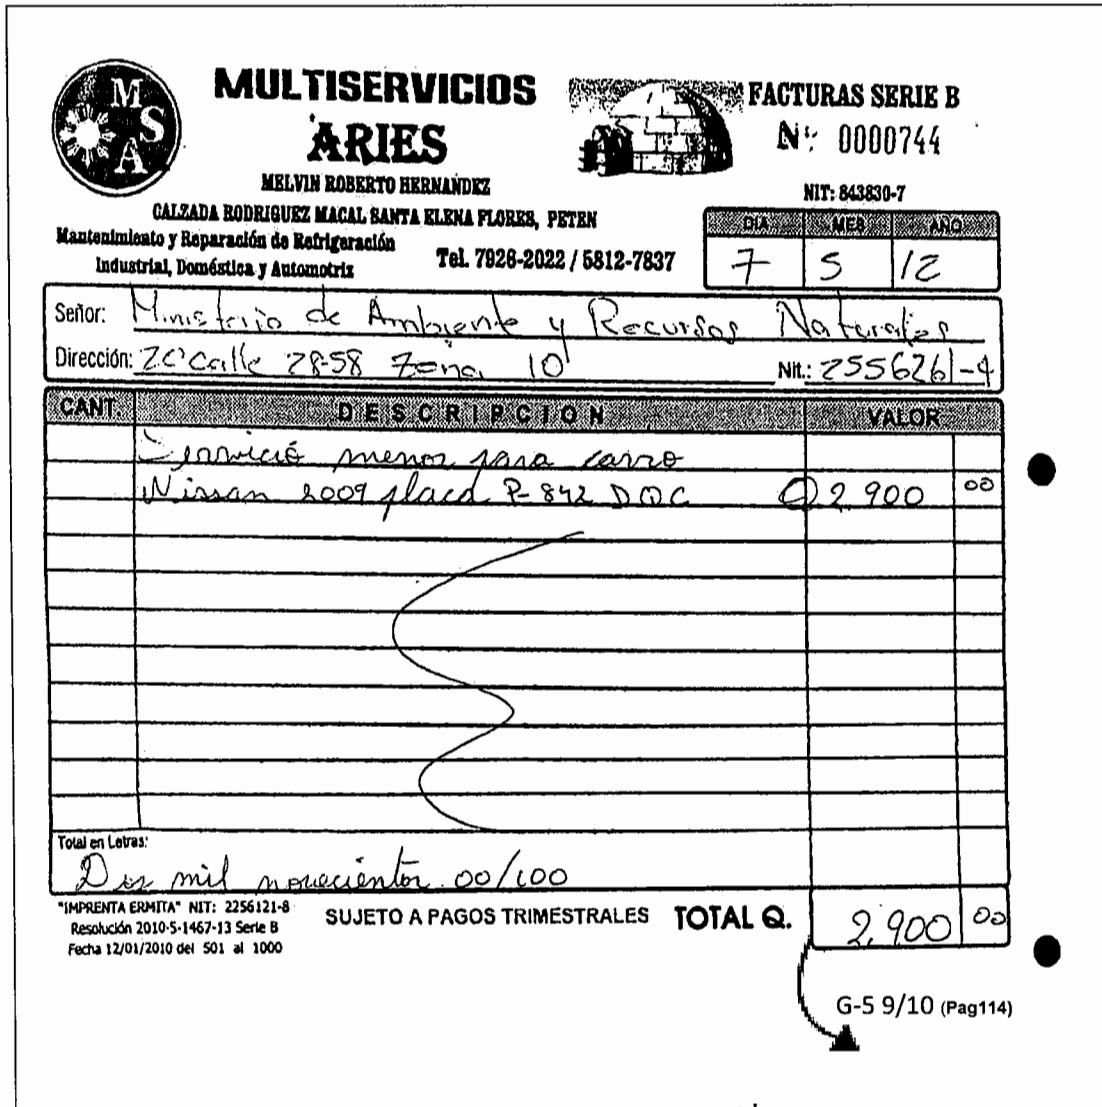 MSA
MULTISERVICIOS
ARIES
MELVIN ROBERTO HERNANDEZ
CALZADA RODRIGUEZ MACAL SANTA ELENA FLORES, PETEN
Mantenimiento y Reparación de Refrigeración
Industrial, Doméstica y Automotriz
Tel. 7926-2022 / 5812-7837
FACTURAS SERIE B
Nº 0000744
NIT: 843830-7
DIA MES AÑO
7 5 12
Señor: Ministerio de Ambiente y Recursos Naturales
Dirección: 20 Calle 28-58 Zona 10 Nit.: 2556261-4
CANT. DESCRIPCION VALOR
Servicio menor para carro
Nissan 2009 placa P-842 DQC Q 2,900 00
Total en Letras:
Dos mil novecientos 00/100
"IMPRENTA ERMITA" NIT: 2256121-8
Resolución 2010-5-1467-13 Serie B
Fecha 12/01/2010 del 501 al 1000
SUJETO A PAGOS TRIMESTRALES TOTAL Q. 2,900 00
G-5 9/10 (Pag114)